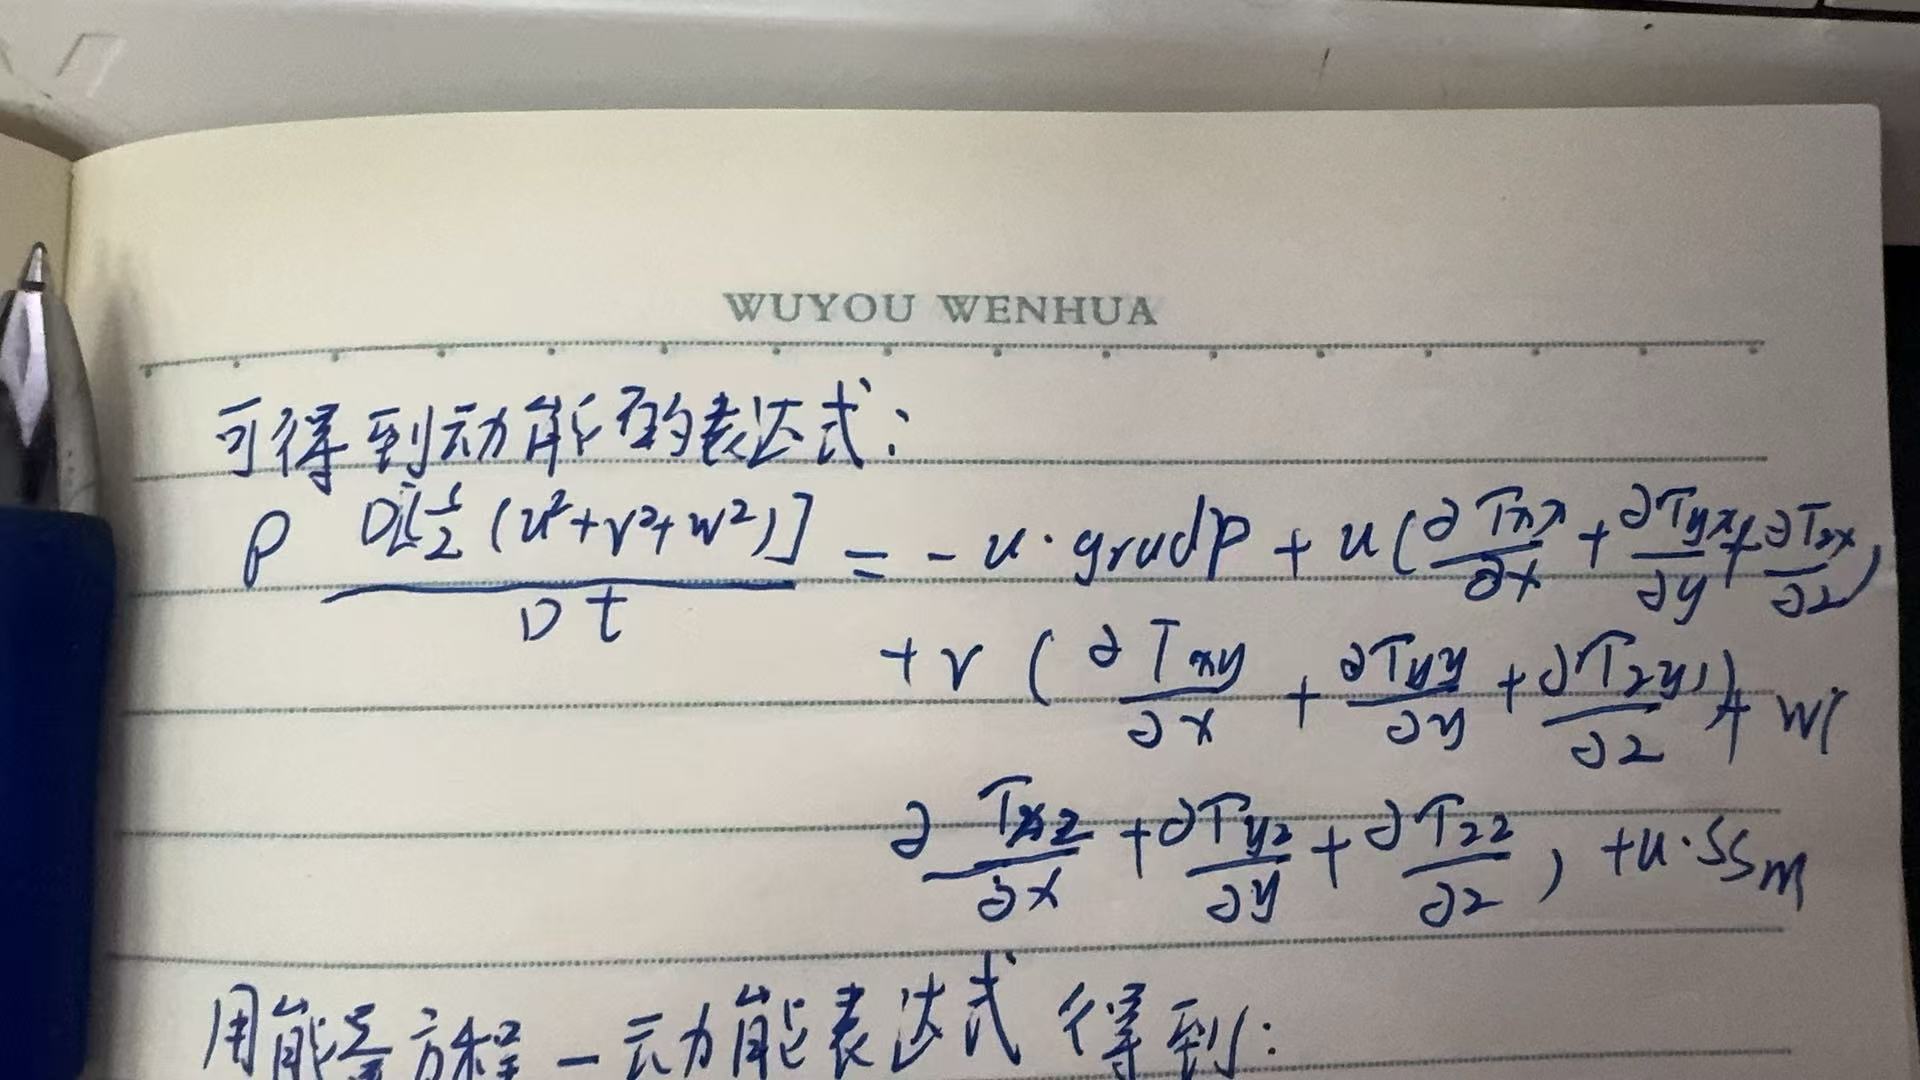 WUYOU WENHUA
可得到动能的表达式:
ρ D[½(u²+v²+w²)]/Dt = -u·grad p + u(∂τxx/∂x + ∂τyx/∂y + ∂τzx/∂z)
+ v(∂τxy/∂x + ∂τyy/∂y + ∂τzy/∂z) + w(
∂τxz/∂x + ∂τyz/∂y + ∂τzz/∂z) + u·SSm
用能量方程-动能表达式得到: